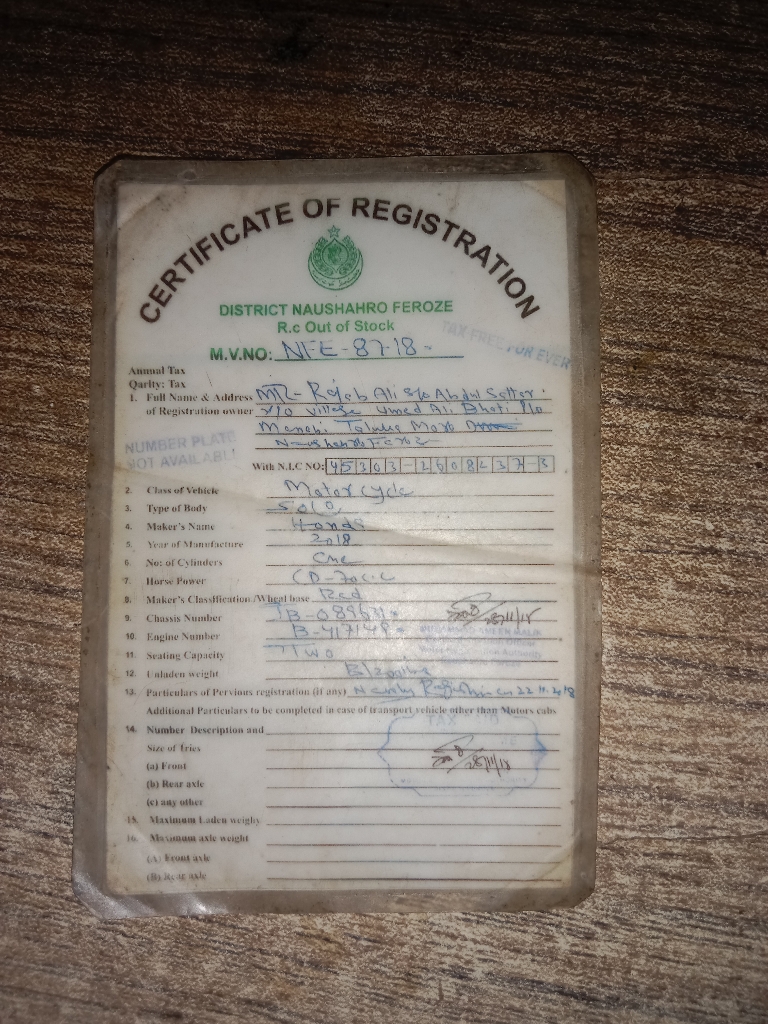 CERTIFICATE OF REGISTRATION
DISTRICT NAUSHAHRO FEROZE
R.c Out of Stock
TAX FREE FOR EVER
M.V.NO: NFE-87-18-
Annual Tax
Qarlity: Tax
1. Full Name & Address MR- Rajab Ali S/o Abdul Sattar
of Registration owner R/o Village Umed Ali Bhati P/o
Taluka
NUMBER PLATE
NOT AVAILABLE
With N.I.C NO: 45303-2608237-3
2. Class of Vehicle Motorcycle
3. Type of Body Solo
4. Maker's Name Honda
5. Year of Manufacture 2018
6. No: of Cylinders One
7. Horse Power CD-70c.c
8. Maker's Classification/Wheal base Red
9. Chassis Number
10. Engine Number
11. Seating Capacity Two
12. Unladen weight
13. Particulars of Pervious registration (if any) Newly
Additional Particulars to be completed in case of transport vehicle other than Motors cabs
14. Number Description and
Size of Tries
(a) Front
(b) Rear axle
(c) any other
15. Maximum Laden weighy
16. Maximum axle weight
(A) Front axle
(B) Rear axle
TAX
28/11/18